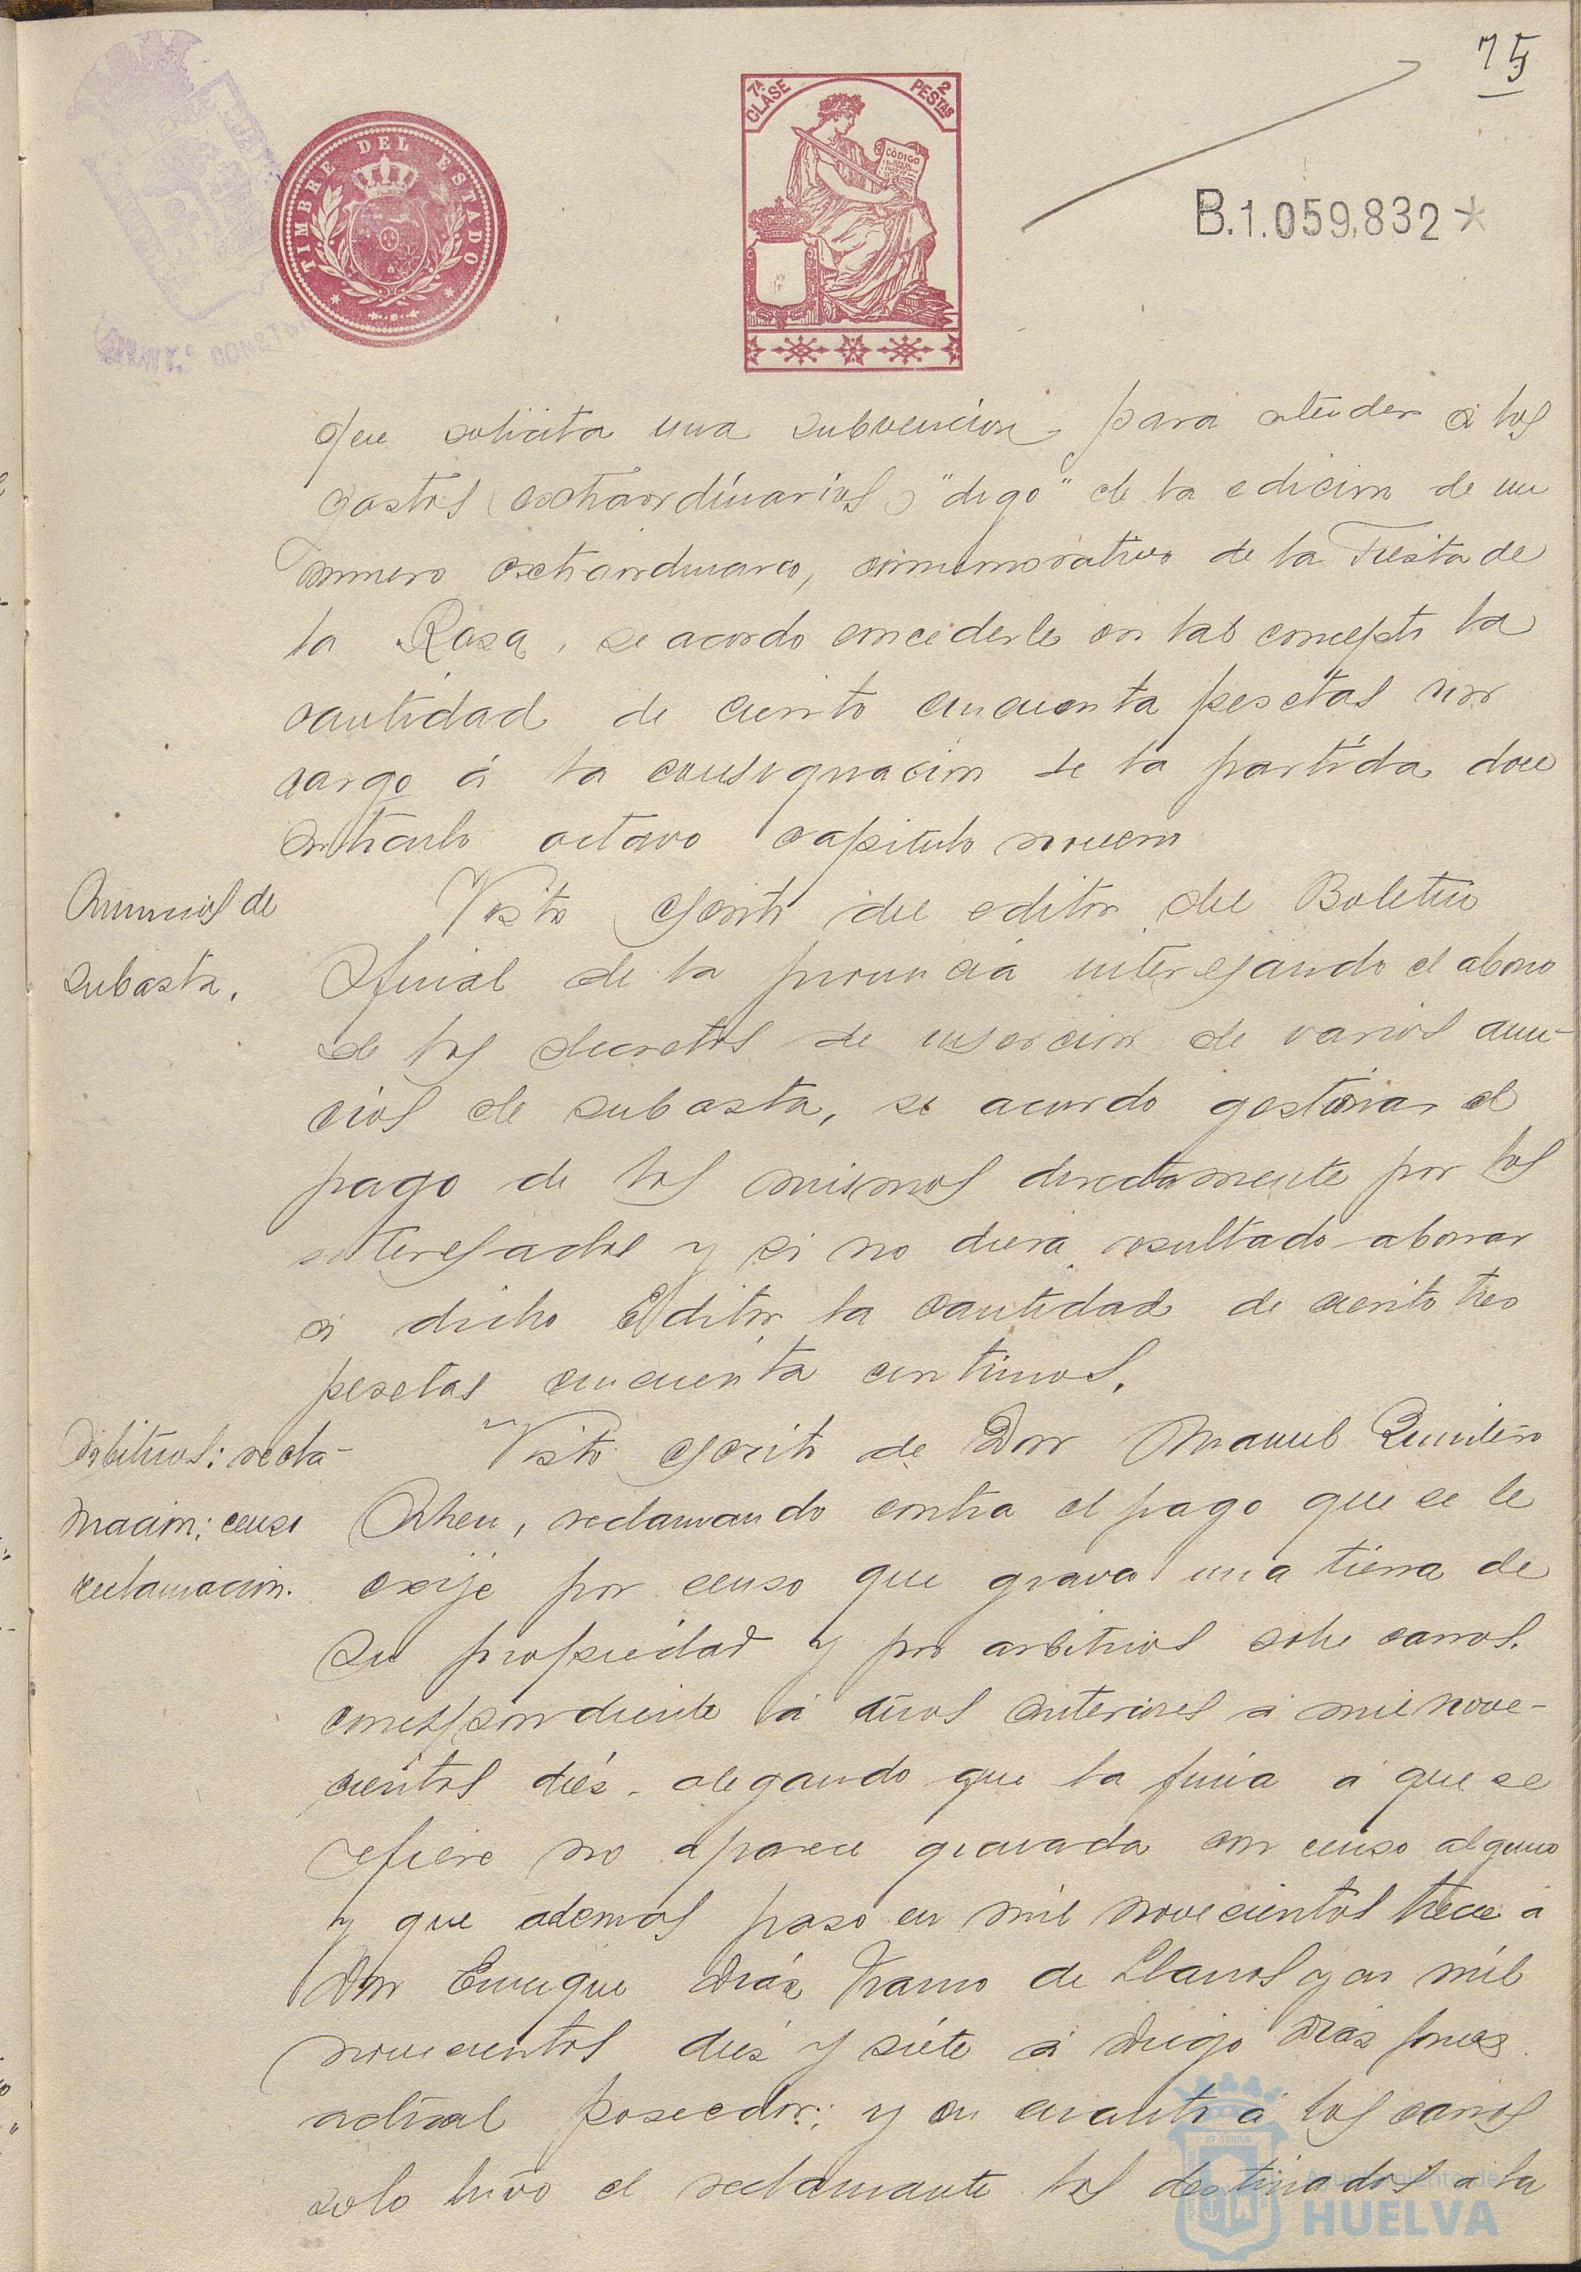 75
TIMBRE DEL ESTADO
7ª CLASE
2 PESTAS
CÓDIGO
B.1.059,832*
que solicita una subvencion para atender á los
gastos (extraordinarios) "digo" de la edicion de un
numero extraordinario, conmemorativo de la Fiesta de
la Rosa, se acordo concederle en tal concepto la
cantidad de ciento cincuenta pesetas con
cargo á la consignacion de la partida doce
articulo octavo capitulo noveno
Anuncios de
subasta.
Visto escrito del editor del Boletin
Oficial de la provincia interesando el abono
de los decretos de insercion de varios anun-
cios de subasta, se acordo gestionar el
pago de los mismos directamente por los
interesados y si no diera resultado abonar
á dicho Editor la cantidad de ciento tres
pesetas cincuenta centimos.
Arbitrios: recla-
macion; censo
reclamacion.
Visto escrito de Don Manuel Quintero
reclamando contra el pago que se le
exije por censo que grava una tierra de
su propiedad y por arbitrios sobre carros.
correspondiente á años anteriores á mil nove-
cientos diés. alegando que la finca á que se
refiere no aparece gravada con censo alguno
y que ademas paso en mil novecientos trece á
Don Enrique Diáz Franco de Llanos y en mil
novecientos diés y siete á Diego Dias
actual poseedor; y en cuanto á los carros
solo tuvo el reclamante los destinados a la
Ayuntamiento de
HUELVA